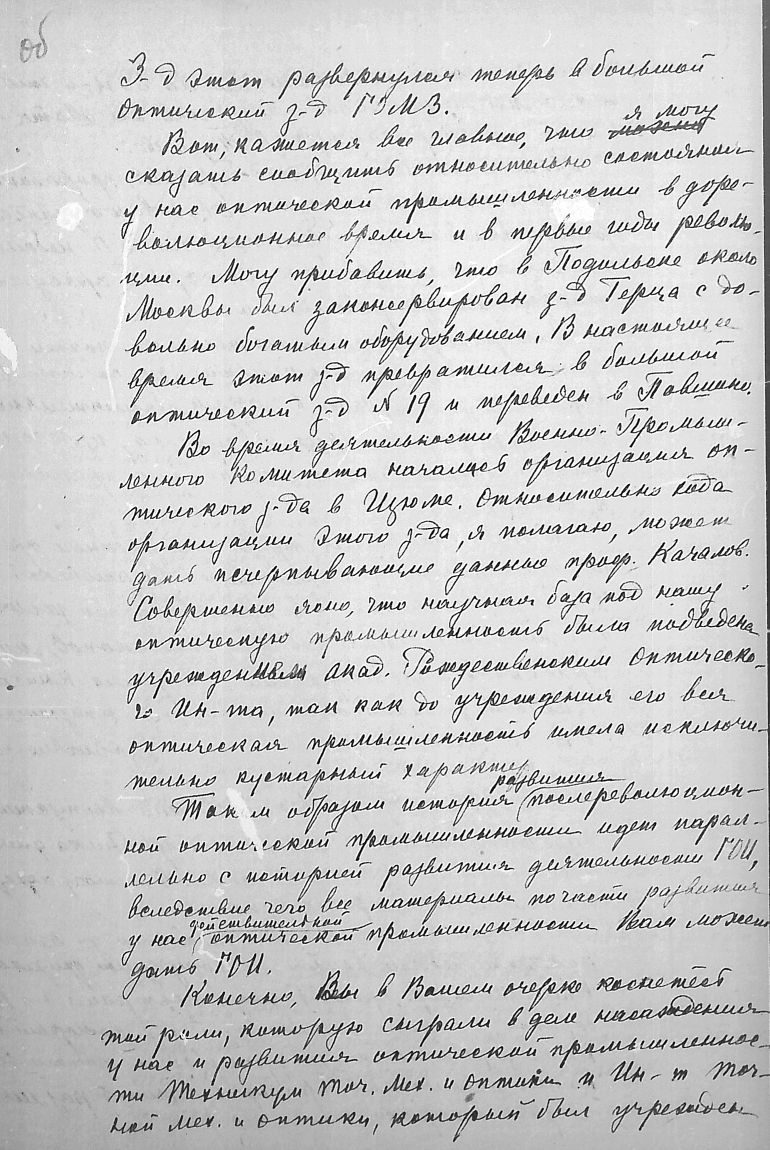 об
З-д этот развернулся теперь в большой
оптический з-д ГОМЗ.
Вот, кажется все главное, что я могу
сказать сообщить относительно состояния
у нас оптической промышленности в доре-
волюционное время и в первые годы револю-
ции. Могу прибавить, что в Подольске около
Москвы был законсервирован з-д Герца с до-
вольно богатым оборудованием. В настоящее
время этот з-д превратился в большой
оптический з-д № 19 и переведен в Павшино.
Во время деятельности Военно-Промыш-
ленного Комитета началась организация оп-
тического з-да в Изюме. Относительно хода
организации этого з-да, я полагаю, может
дать исчерпывающие данные проф. Качалов.
Совершенно ясно, что научная база под нашу
оптическую промышленность была подведена
учреждением акад. Рождественским Оптическо-
го Ин-та, так как до учреждения его вся
оптическая промышленность имела исключи-
тельно кустарный характер
Таким образом история развития послереволюцион-
ной оптической промышленности идет парал-
лельно с историей развития деятельности ГОИ,
вследствие чего все материалы по части развития
у нас действительной оптической промышленности Вам может
дать ГОИ.
Конечно, Вы в Вашем очерке коснетесь
той роли, которую сыграли в деле насаждения
у нас и развития оптической промышленнос-
ти Техникум точ. мех. и оптики и Ин-т точ-
ной мех. и оптики, который был учрежден